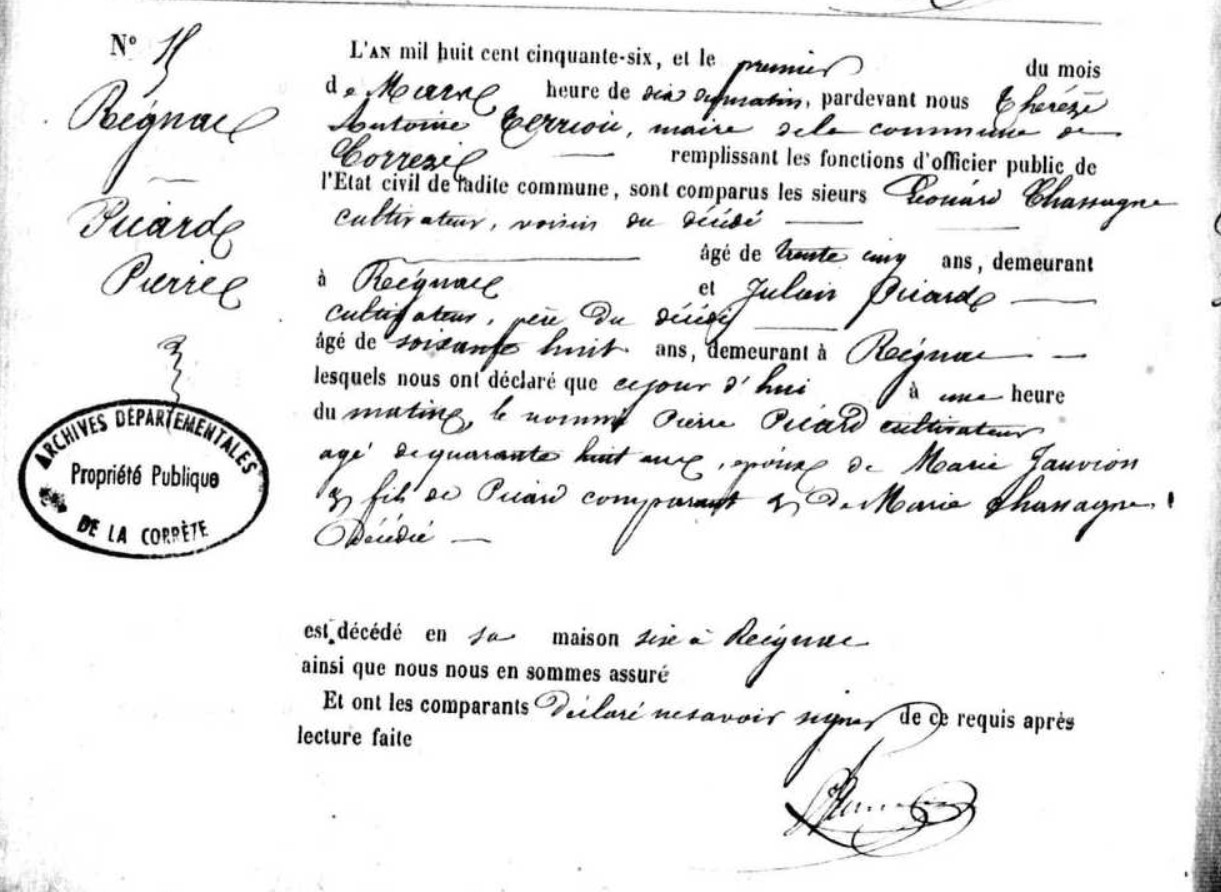 N° 15
Reignac
Picard
Pierre
ARCHIVES DÉPARTEMENTALES
Propriété Publique
DE LA CORRÈZE
L'AN mil huit cent cinquante-six, et le premier du mois
de Mars heure de dix du matin, pardevant nous Thérèze
Antoine Terriou, maire de la commune de
Correze remplissant les fonctions d'officier public de
l'Etat civil de ladite commune, sont comparus les sieurs Léonard Chassagne
cultivateur, voisin du décédé
âgé de trente cinq ans, demeurant
à Reignac et Julien Picard
cultivateur, père du décédé
âgé de soixante huit ans, demeurant à Reignac
lesquels nous ont déclaré que cejour d'hui à une heure
du matin, le nommé Pierre Picard cultivateur
agé de quarante huit ans, epoux de Marie Jauvion
& fils de Picard comparant & De Marie Chassagne
Décédée
est décédé en sa maison sise à Reignac
ainsi que nous nous en sommes assuré
Et ont les comparants Déclaré ne savoir signer de ce requis après
lecture faite